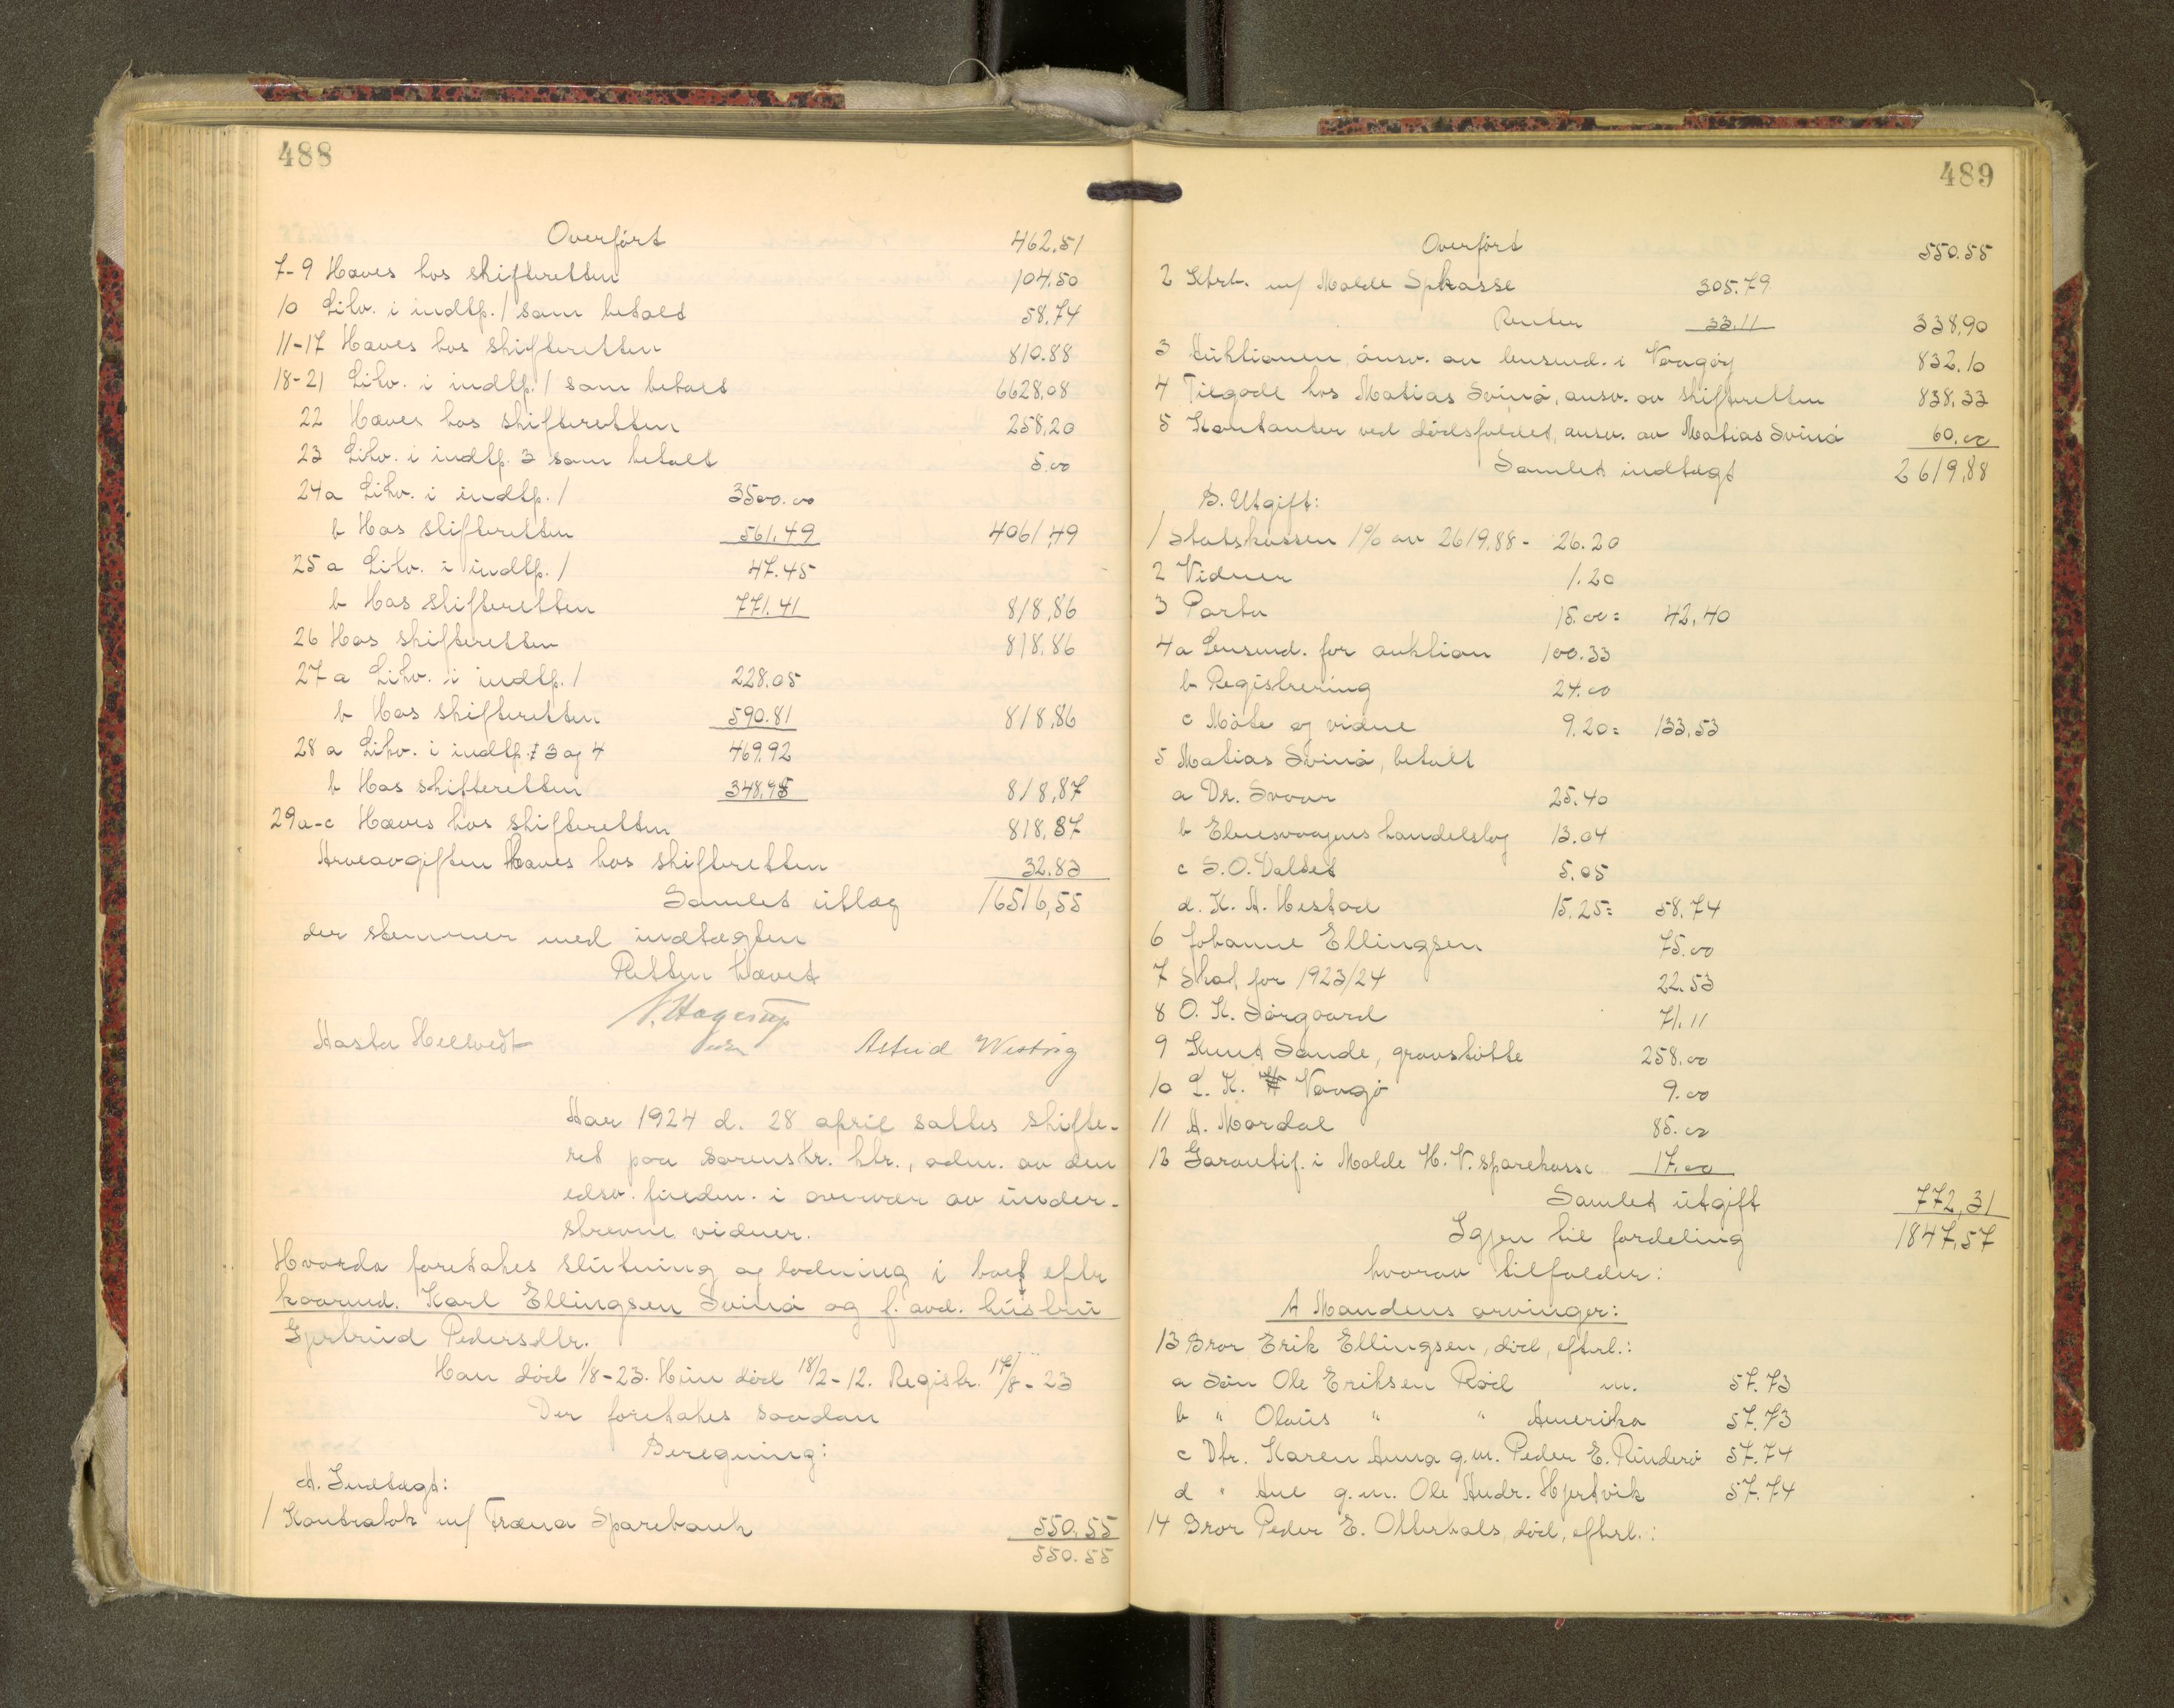 488
Overført 462.51
7-9 Hæves hos skifteretten 104.50
10 Likv. i indtp. 1 som betalt 58.74
11-17 Hæves hos skifteretten 810.88
18-21 Likv. i indtp. 1 som betalt 6628.08
22 Hæves hos skifteretten 258.20
23 Likv. i indtp. 3 som betalt 5.00
24a Likv. i indtp. 1 3500.00
b Hos skifteretten 561.49 4061.49
25 a Likv. i indtp. 1 47.45
b Hos skifteretten 771.41 818.86
26 Hos skifteretten 818.86
27 a Likv. i indtp. 1 228.05
b Hos skifteretten 590.81 818.86
28 a Likv. i indtp. 3 og 4 469.92
b Hos skifteretten 348.95 818.87
29a-c Hæves hos skifteretten 818.87
Arveavgiften hæves hos skifteretten 32.83
Samlet utlæg 16516,55
der stemmer med indtægten
Retten hævet
N. Hagerup
Aasta Hellvedt Astrid Westvig
Aar 1924 d. 28 april sattes skifte-
ret paa sorenskr. ktr., adm. av den
edsv. fuldm. i overvær av under-
skrevne vidner.
Hvorda foretakes slutning og lodning i boet efter
kaarmd. Karl Ellingsen Svinø og f. avd. hustru
Gjertrud Pedersdtr.
Han död 1/8-23. Hun död 18/2-12. Registr. 17/8-23
Der foretakes saadan
Beregning:
A. Indtægt:
1 Kontrabok m/ Fræna Sparebank 550.55
550.55
489
Overført 550.55
2 Ktrb. m/ Molde Spkasse 305.79
Renter 33.11 338.90
3 Auktionen, ansv. av lensmd. i Vaagøy 832.10
4 Tilgode hos Matias Svinø, ansv. av skifteretten 838.33
5 Kontanter ved dødsfaldet, ansv. av Matias Svinø 60.00
Samlet indtægt 2619,88
B. Utgift:
1 Statskassen 1% av 2619.88 - 26.20
2 Vidner 1.20
3 Porto 15.00 = 42.40
4a Lensmd. for auktion 100.33
b Registrering 24.00
c Møte og vidne 9.20 = 133.53
5 Matias Svinø, betalt
a Dr. Svaar 25.40
b Elnesvaagens handelslag 13.04
c S.O. Valdet 5.05
d. K. A. Hestad 15.25 = 58.74
6 Johanne Ellingsen 75.00
7 Skat for 1923/24 22.53
8 O. K. Sørgaard 71.11
9 Knut Sande, gravstøtte 258.00
10 L. K. Vaagø 9.00
11 A. Mordal 85.00
12 Garantif. i Molde H. V. sparekasse 17.00
Samlet utgift 772,31
Igjen til fordeling 1847,57
hvorav tilfalder:
A Mandens arvinger:
13 Bror Erik Ellingsen, död, efterl.:
a Søn Ole Eriksen Rød m. 57.73
b " Olaus " " Amerika 57.73
c Dtr. Karen Anna g.m. Peder E. Rinderø 57.74
d " Ane g.m. Ole Andr. Hjertvik 57.74
14 Bror Peder E. Otterhals, död, efterl.: